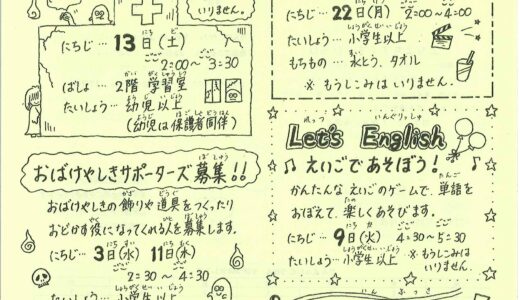 いりません。
にちじ… 13日(土)
2:00〜3:30
ばしょ… 2階 学習室
たいしょう… 幼児以上
(幼児は保護者同伴)
22日(月) 2:00〜4:00
たいしょう… 小学生以上
もちもの… 水とう、タオル
※ もうしこみは いりません。
おばけやしきサポーターズ 募集!!
おばけやしきの 飾りや 道具を つくったり
おどかす役に なってくれる人を 募集します。
にちじ… 3日(水) 11日(木)
2:30〜4:30
たいしょう… 小学生以上
Let's English
えいごであそぼう!
かんたんな えいごのゲームで、単語を
おぼえて、楽しくあそびます。
にちじ… 9日(火) 4:30〜5:30
たいしょう… 小学生以上 ※ もうしこみは
いりません。